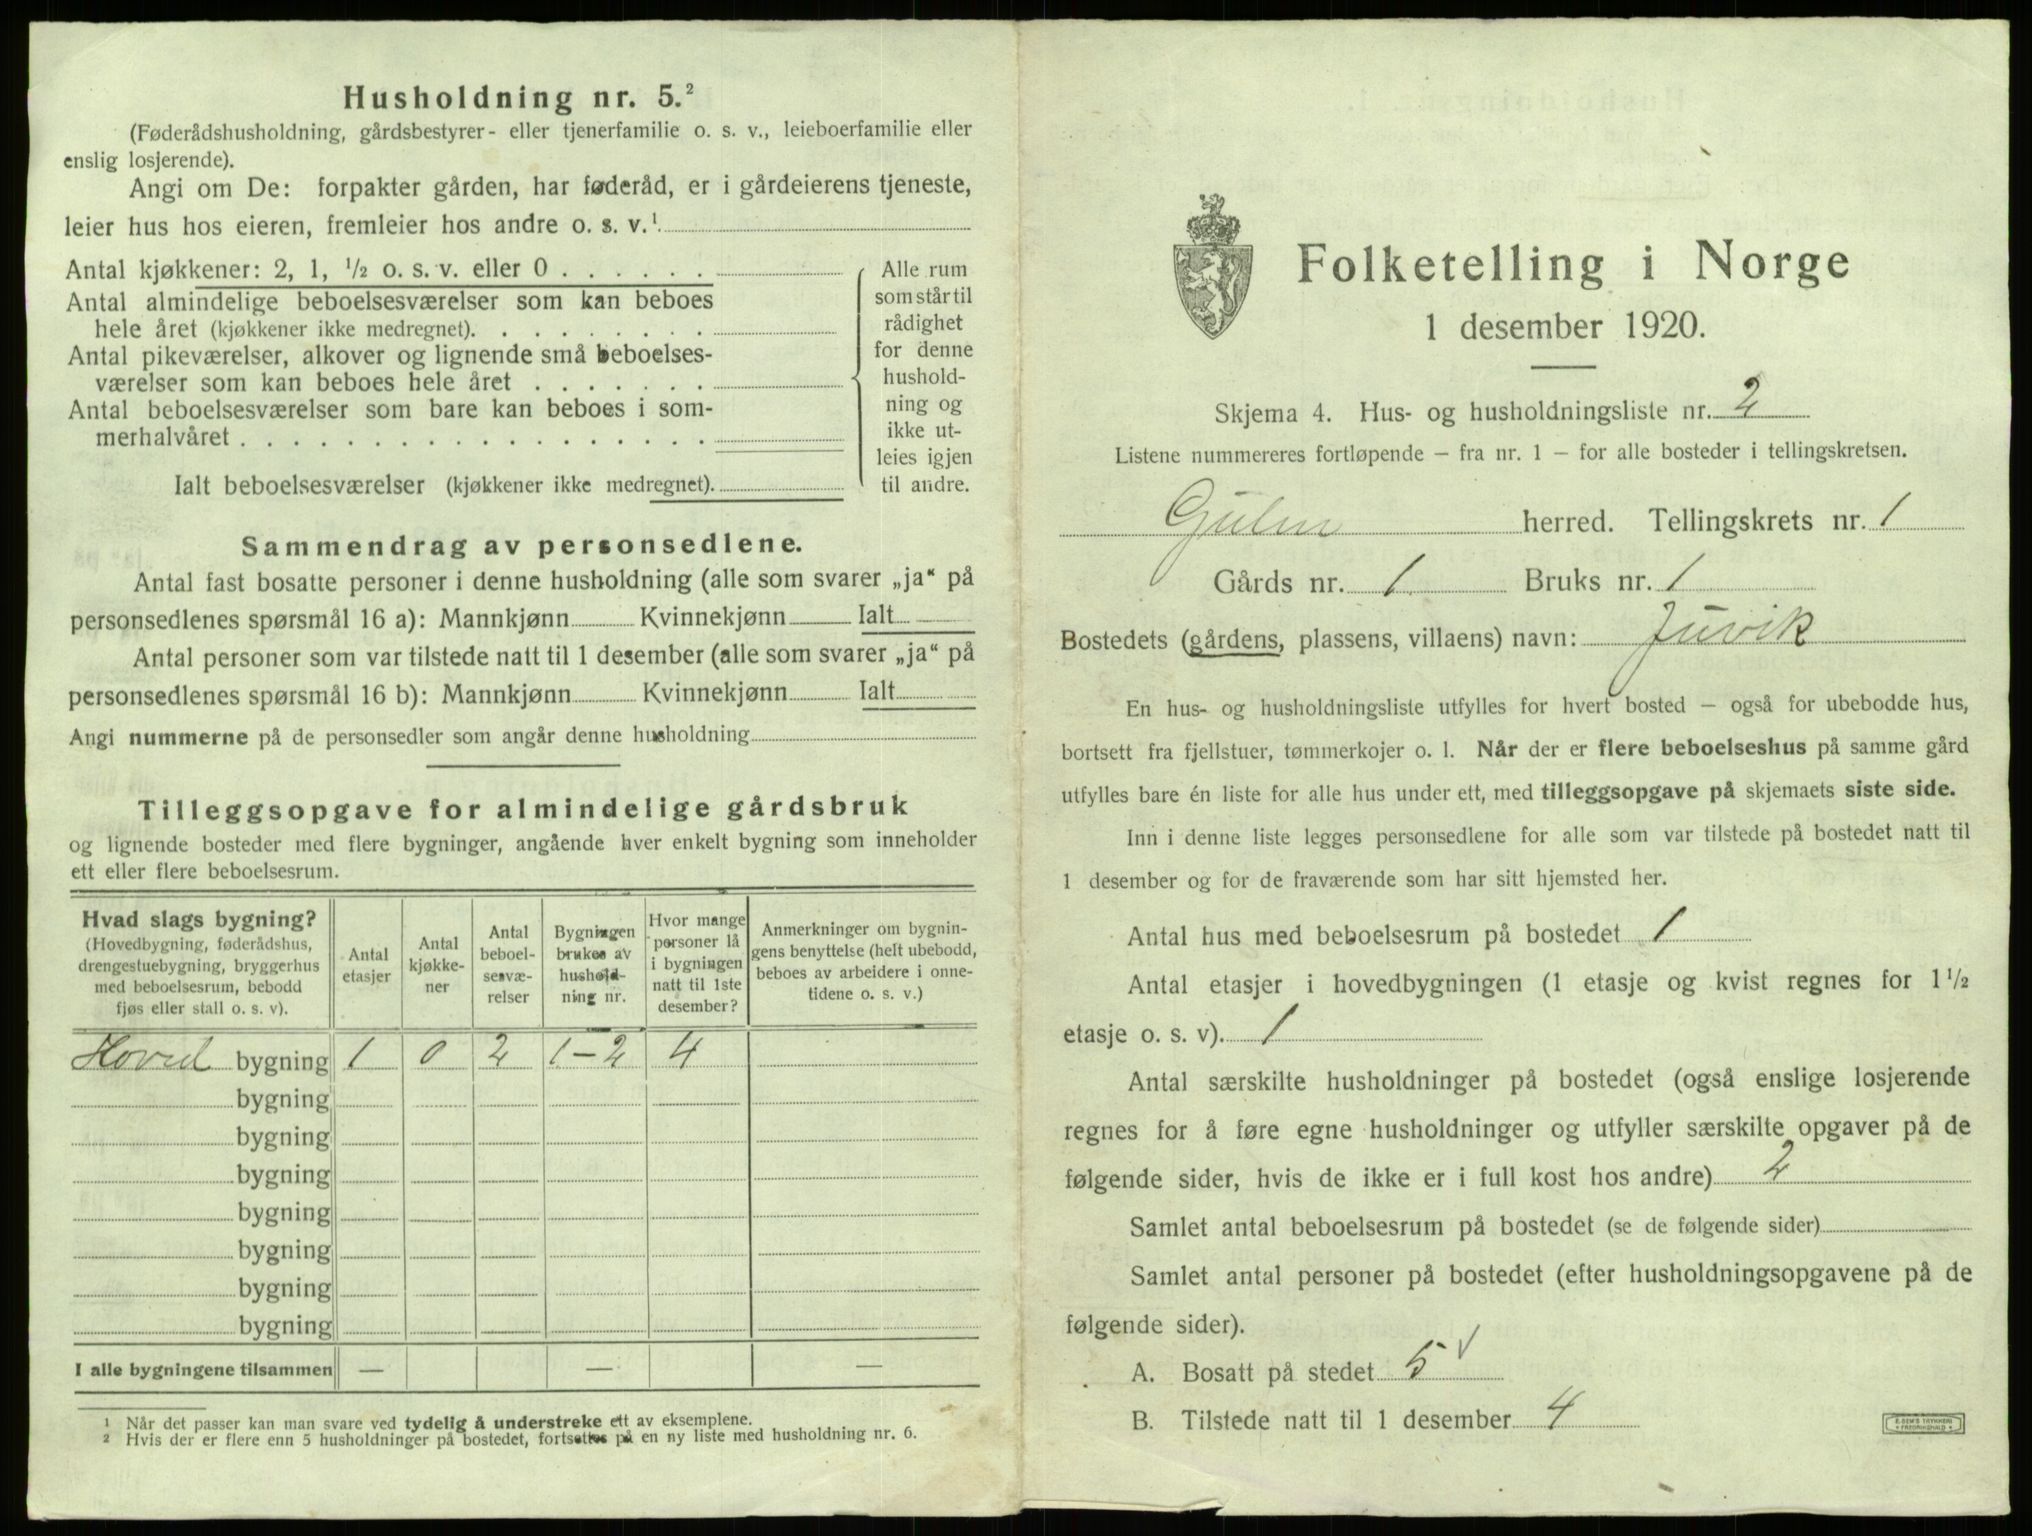 Husholdning nr. 5.²
(Føderådshusholdning, gårdsbestyrer- eller tjenerfamilie o. s. v., leieboerfamilie eller
enslig losjerende).
Angi om De: forpakter gården, har føderåd, er i gårdeierens tjeneste,
leier hus hos eieren, fremleier hos andre o. s. v.¹
Antal kjøkkener: 2, 1, ½ o. s. v. eller 0 . . . . . .
Antal almindelige beboelsesværelser som kan beboes
hele året (kjøkkener ikke medregnet). . . . . . . . .
Antal pikeværelser, alkover og lignende små beboelses-
værelser som kan beboes hele året . . . . . . .
Antal beboelsesværelser som bare kan beboes i som-
merhalvåret . . . . . . . . . . . . . . . . . .
Ialt beboelsesværelser (kjøkkener ikke medregnet).
Alle rum
som står til
rådighet
for denne
hushold-
ning og
ikke ut-
leies igjen
til andre.
Sammendrag av personsedlene.
Antal fast bosatte personer i denne husholdning (alle som svarer „ja" på
personsedlenes spørsmål 16 a): Mannkjønn Kvinnekjønn Ialt
Antal personer som var tilstede natt til 1 desember (alle som svarer „ja" på
personsedlenes spørsmål 16 b): Mannkjønn Kvinnekjønn Ialt
Angi nummerne på de personsedler som angår denne husholdning
Tilleggsopgave for almindelige gårdsbruk
og lignende bosteder med flere bygninger, angående hver enkelt bygning som inneholder
ett eller flere beboelsesrum.
Hvad slags bygning?
(Hovedbygning, føderådshus,
drengestuebygning, bryggerhus
med beboelsesrum, bebodd
fjøs eller stall o. s. v).
Antal
etasjer
Antal
kjøkke-
ner
Antal
beboel-
sesvæ-
relser
Bygningen
brukes av
hushold-
ning nr.
Hvor mange
personer lå
i bygningen
natt til 1ste
desember?
Anmerkninger om bygnin-
gens benyttelse (helt ubebodd,
beboes av arbeidere i onne-
tidene o. s. v.)
Hoved bygning 1 0 2 1-2 4
bygning
bygning
bygning
bygning
bygning
bygning
bygning
I alle bygningene tilsammen — — —
¹ Når det passer kan man svare ved tydelig å understreke ett av eksemplene.
² Hvis der er flere enn 5 husholdninger på bostedet, fortsettes på en ny liste med husholdning nr. 6.
Folketelling i Norge
1 desember 1920.
Skjema 4. Hus- og husholdningsliste nr. 2
Listene nummereres fortløpende – fra nr. 1 – for alle bosteder i tellingskretsen.
Gulen herred. Tellingskrets nr. 1
Gårds nr. 1 Bruks nr. 1
Bostedets (gårdens, plassens, villaens) navn: Juvik
En hus- og husholdningsliste utfylles for hvert bosted – også for ubebodde hus,
bortsett fra fjellstuer, tømmerkojer o. l. Når der er flere beboelseshus på samme gård
utfylles bare én liste for alle hus under ett, med tilleggsopgave på skjemaets siste side.
Inn i denne liste legges personsedlene for alle som var tilstede på bostedet natt til
1 desember og for de fraværende som har sitt hjemsted her.
Antal hus med beboelsesrum på bostedet 1
Antal etasjer i hovedbygningen (1 etasje og kvist regnes for 1½
etasje o. s. v). 1
Antal særskilte husholdninger på bostedet (også enslige losjerende
regnes for å føre egne husholdninger og utfyller særskilte opgaver på de
følgende sider, hvis de ikke er i full kost hos andre) 2
Samlet antal beboelsesrum på bostedet (se de følgende sider)
Samlet antal personer på bostedet (efter husholdningsopgavene på de
følgende sider).
A. Bosatt på stedet 5 √
B. Tilstede natt til 1 desember 4
E. SEM'S TRYKKERI
FREDRIKSHALD